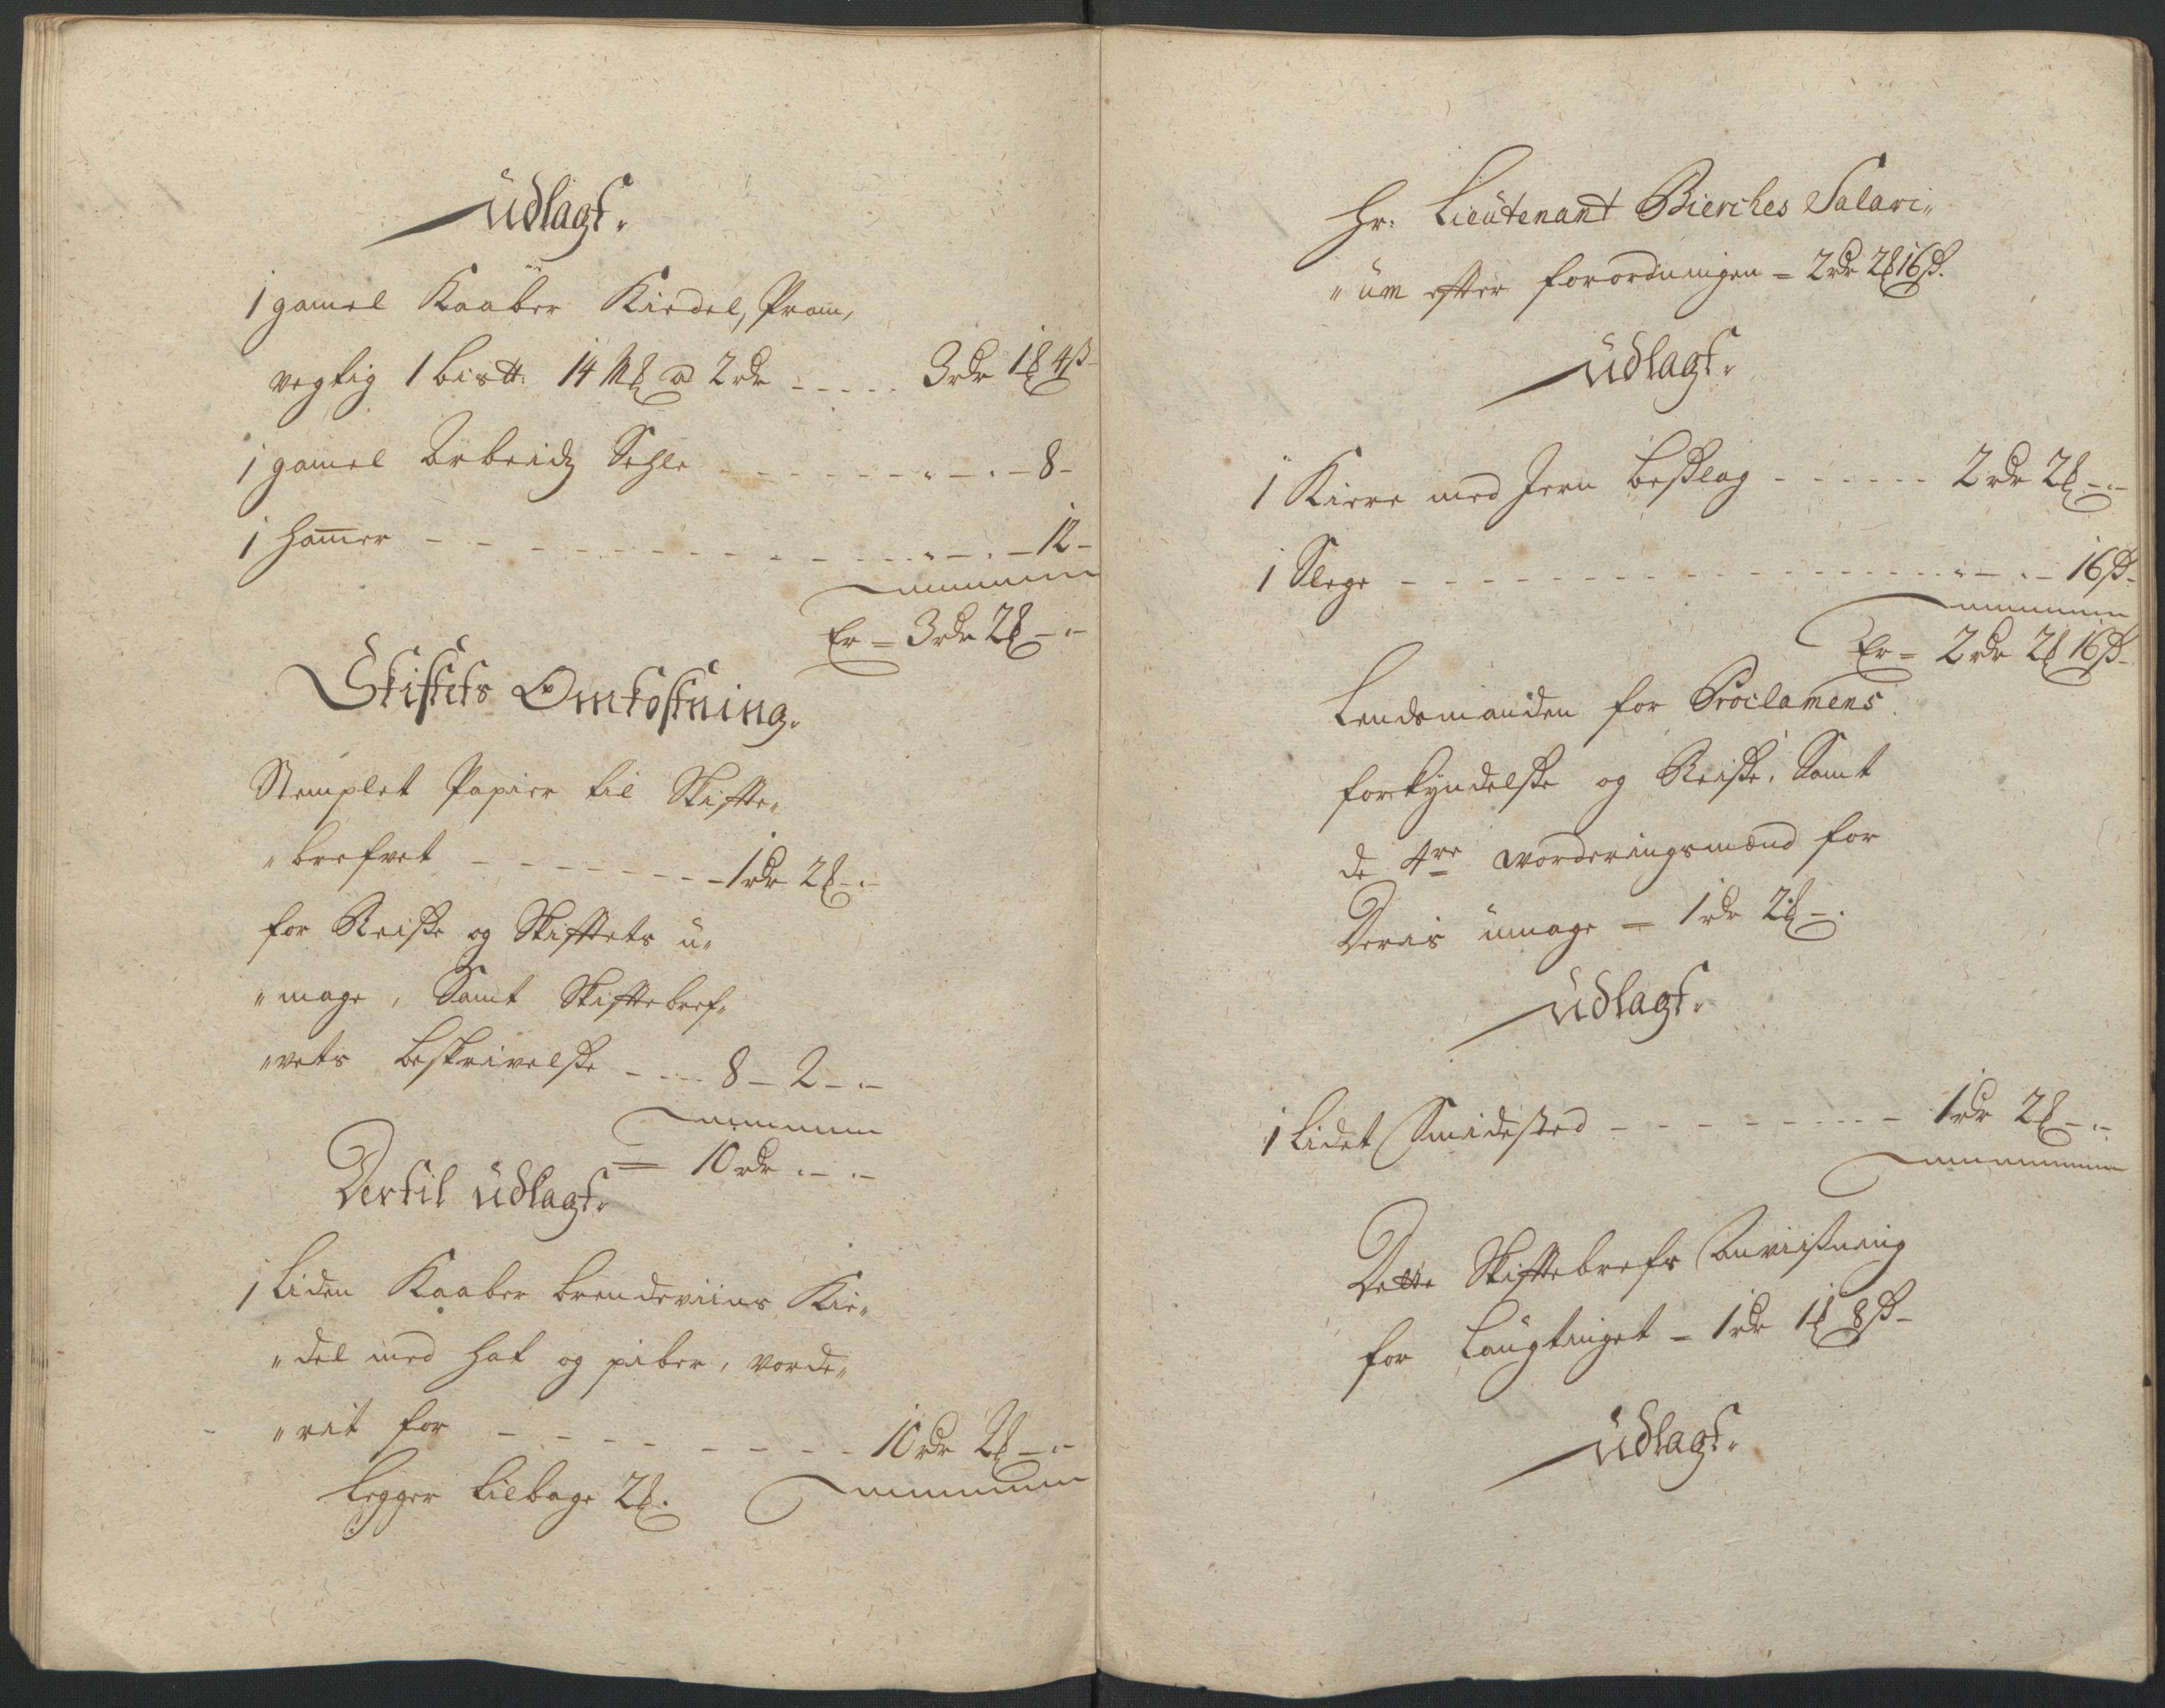 Udlagt.
1 gamel Kaaber Kiedel, Pram,
vegtig 1 bistt: 14 m̶k̶ a 2 rdr - - - - - 3 rdr 1 mk 4 ß
1 gamel Arbeidz Sehle - - - - - - - - 8 -
1 hamer - - - - - - - - - - - - 12 -
Er = 3 rdr 2 mk - " -
Skiftets Omkostning.
Stemplet Papier til Skifte„
„brefvet - - - - - - - - 1 rdr 2 mk - " -
for Reiße og Skifftets u„
„mage, Samt Skifftebref„
„vets beskrivelße - - - - 8 - 2 - " -
= 10 rdr " - " -
Dertil Udlagt.
1 liden Kaaber brendeviins Kie„
„del med hat og piber, vorde„
„rit for - - - - - - - - 10 rdr 2 mk - " -
legger tilbage 2 mk.
Hr: Lieutenant Bierches Salari„
„um efter forordningen = 2 rdr 2 mk 16 ß.
Udlagt.
1 Kierre med Jern beslag - - - - - - 2 rdr 2 mk - " -
1 Slege - - - - - - - - - - - - - " - " - 16 ß -
Er = 2 rdr 2 mk 16 ß -
Lendsmanden for Proclamens
forkyndelße og Reiße, Samt
de 4re vorderingsmænd for
Deris umage = 1 rdr 2 mk - "
Udlagt.
1 lidet Smidested - - - - - - - - - 1 rdr 2 mk - " -
Dette Skiftebrefs Anviisning
for Laugtinget = 1 rdr 1 mk 8 ß -
Udlagt.